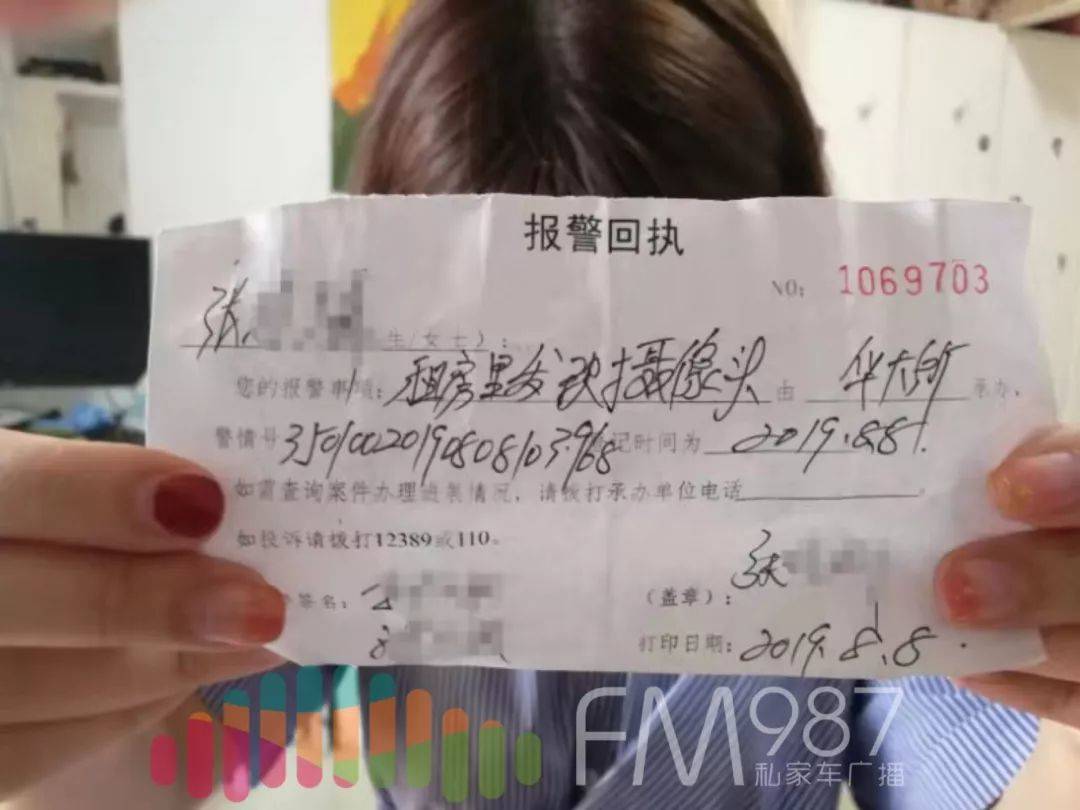 报警回执
NO: 1069703
张 生/女士）：
您的报警事项：租房里发现摄像头由华大所承办，
警情号35010020190808103968登记时间为2019.8.8.
如需查询案件办理进展情况，请拨打承办单位电话
如投诉请拨打12389或110。
签名： （盖章）：张
打印日期：2019.8.8.
FM987
私家车广播